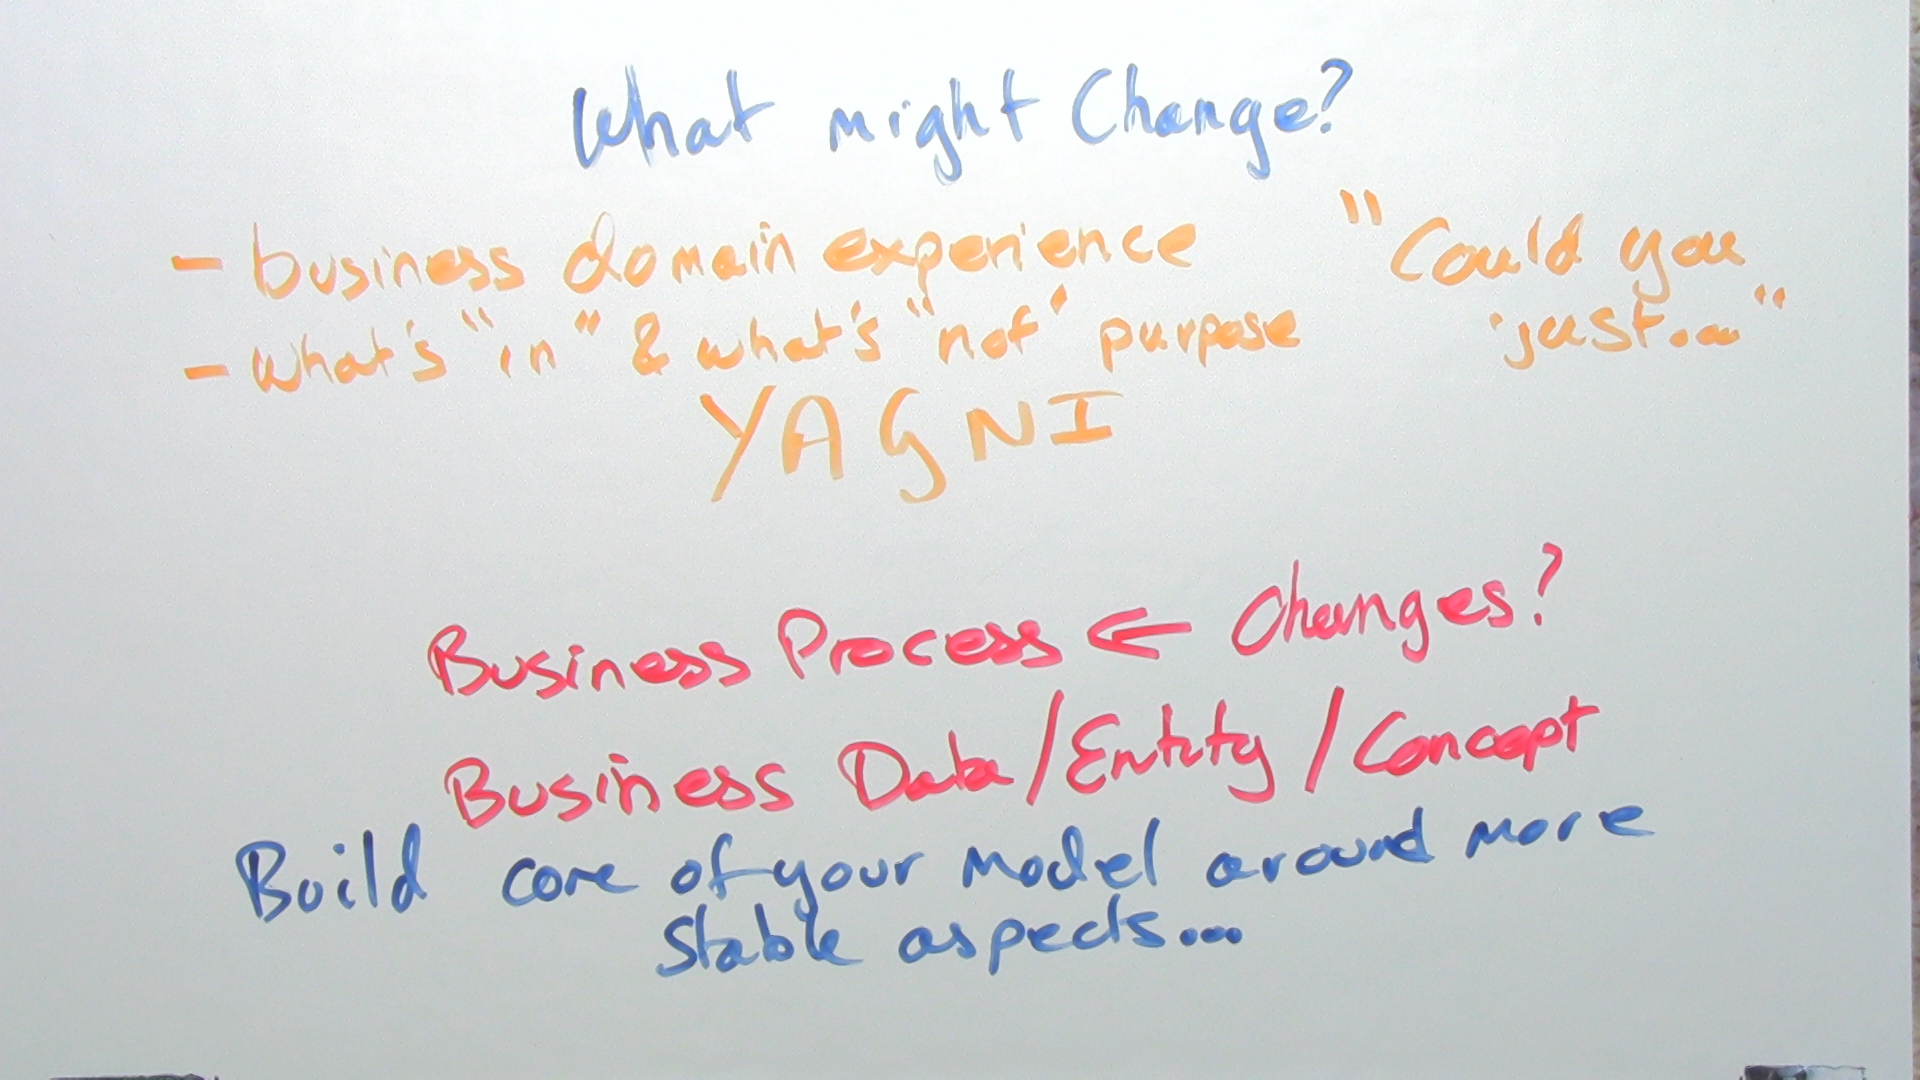 What might Change?
- business domain experience
- what's "in" & what's "not' purpose
"Could you
just..."
YAGNI
Business Process ← Changes?
Business Data/Entity/Concept
Build core of your model around more
stable aspects...